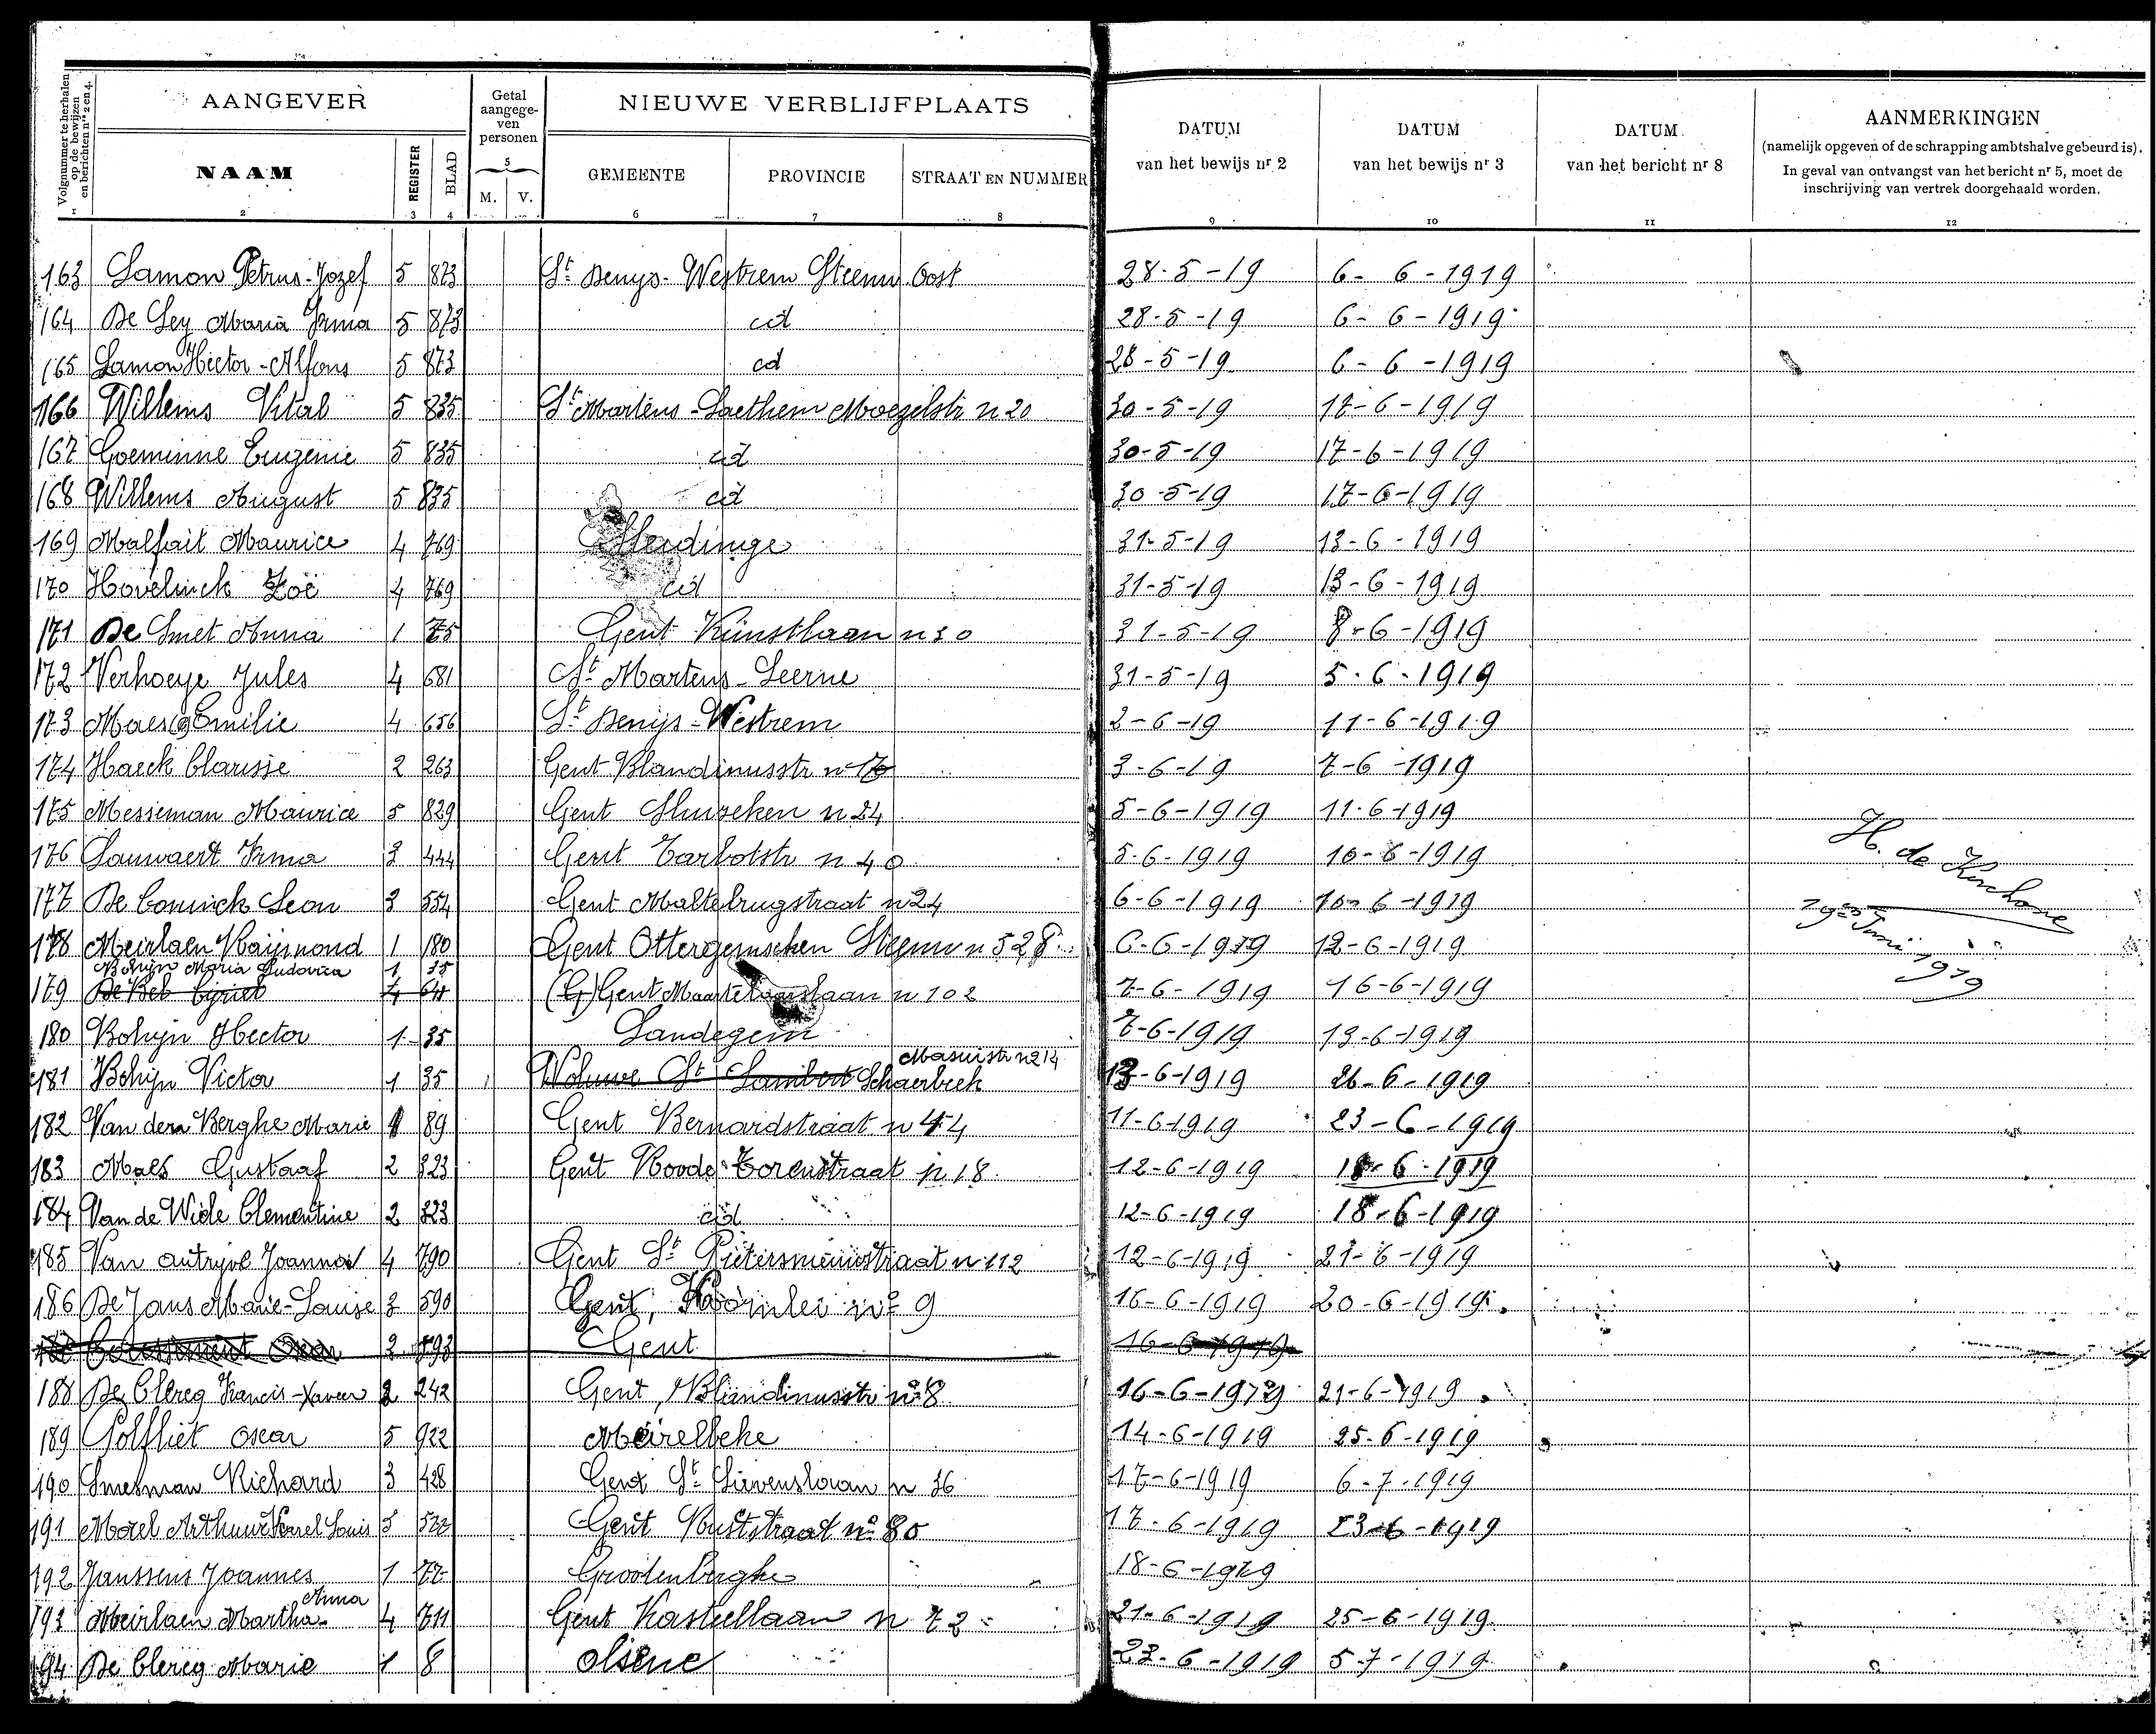 Volgnummer te herhalen op de bewijzen en berichten nrs 2 en 4.
AANGEVER
Getal aangege-ven personen
NIEUWE VERBLIJFPLAATS
DATUM van het bewijs nr 2
DATUM van het bewijs nr 3
DATUM van het bericht nr 8
AANMERKINGEN
(namelijk opgeven of de schrapping ambtshalve gebeurd is).
In geval van ontvangst van het bericht nr 5, moet de
inschrijving van vertrek doorgehaald worden.
NAAM REGISTER BLAD M. V. GEMEENTE PROVINCIE STRAAT EN NUMMER
1 2 3 4 5 6 7 8 9 10 11 12
163 Lamon Petrus-Jozef 5 873 St Denys-Westrem Steenw Oost 28-5-19 6-6-1919
164 De Ley Maria Irma 5 873 id 28-5-19 6-6-1919
165 Lamon Hector-Alfons 5 873 id 28-5-19 6-6-1919
166 Willems Vital 5 835 St Martens-Laethem Moezelstr n 20 30-5-19 17-6-1919
167 Goeminne Eugenie 5 835 id 30-5-19 17-6-1919
168 Willems August 5 835 id 30-5-19 17-6-1919
169 Malfait Maurice 4 769 31-5-19 13-6-1919
170 Hovelinck Zoë 4 769 id 31-5-19 13-6-1919
171 De Smet Anna 1 75 Gent Kunstlaan n 30 31-5-19 8-6-1919
172 Verhoeye Jules 4 681 St Martens-Leerne 31-5-19 5-6-1919
173 Maes Emilie 4 656 St Denijs-Westrem 2-6-19 11-6-1919
174 Haeck Clarisse 2 263 Gent Blandinusstr n 3-6-19 7-6-1919
175 Messeman Maurice 5 829 Gent Sluizeken n 24 5-6-1919 11-6-1919
176 Lauwaert Irma 3 444 Gent Tarbotstr n 40 5-6-1919 10-6-1919
H. de Kerchove
177 De Coninck Leon 3 554 Gent Maltebrugstraat n 24 6-6-1919 10-6-1919
19en Juni 1919
178 Meirlaen Raijmond 1 180 Gent Ottergemschen Steenw n 528 6-6-1919 12-6-1919
Bohijn Maria Ludovica 1 35
179 De Bel Cyriel 4 Gent Martelaarslaan n 102 7-6-1919 16-6-1919
180 Bohijn Hector 1 35 Landegem 7-6-1919 13-6-1919
Masuistr n 214
181 Bohijn Victor 1 35 Woluwe St Lambert Schaerbeek 13-6-1919 26-6-1919
182 Van den Berghe Marie 1 89 Gent Bernardstraat n 44 11-6-1919 23-6-1919
183 Maes Gustaaf 2 323 Gent Roode Torenstraat n 18 12-6-1919 18-6-1919
184 Van de Wiele Clementine 2 323 id 12-6-1919 18-6-1919
185 Van Autrijve Joanna 4 790 Gent St Pietersnieuwstraat n 112 12-6-1919 21-6-1919
186 De Jans Marie-Louise 3 590 Gent, Koornlei no 9 16-6-1919 20-6-1919
Oscar 3 593 Gent 16-6-1919
188 De Clercq Francis-Xaveer 2 242 Gent, Blandinusstr no 8 16-6-1919 21-6-1919
189 Polfliet Oscar 5 922 Meirelbeke 14-6-1919 25-6-1919
190 Smesman Richard 3 428 Gent St Lievenslaan n 36 17-6-1919 6-7-1919
191 Morel Arthur Karel Louis 3 Gent Ruststraat no 80 17-6-1919 23-6-1919
192 Janssens Joannes 1 77 Grootenberghe 18-6-1919
Anna
193 Meirlaen Martha 4 711 Gent Kasteellaan n 72 21-6-1919 25-6-1919
194 De Clercq Marie 1 8 Olsene 23-6-1919 5-7-1919